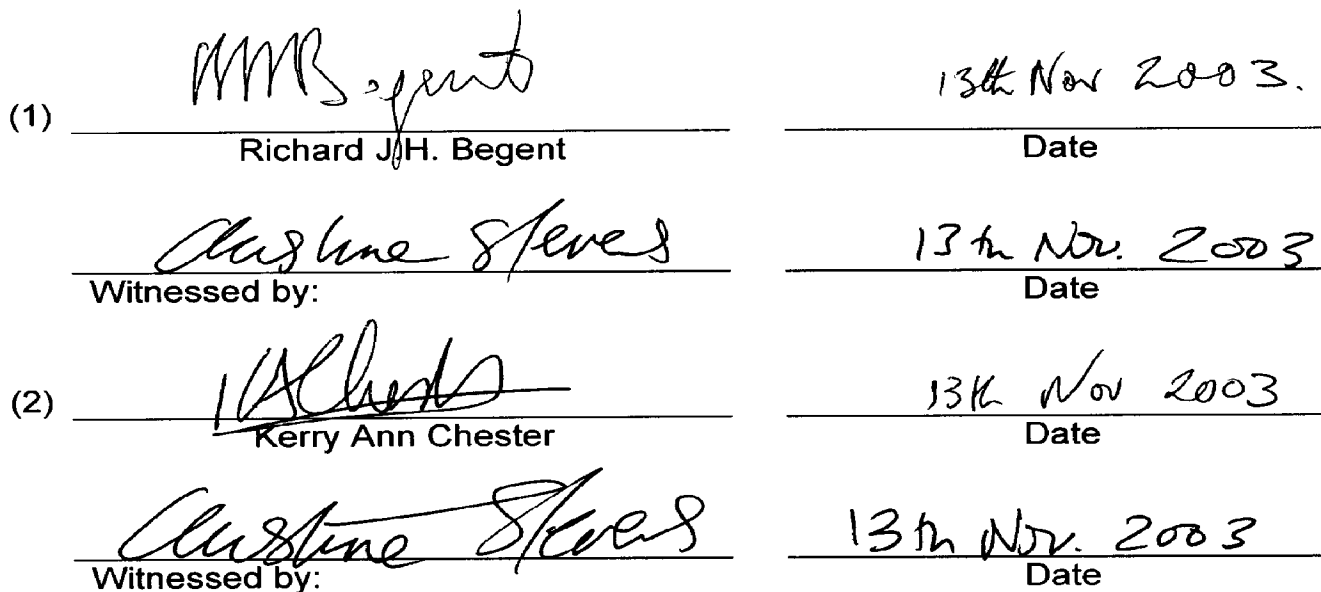 Begent 13th Nov 2003.
(1)
Richard J.H. Begent Date
Christine Steves 13th Nov. 2003
Witnessed by: Date
KAChester 13th Nov 2003
(2)
Kerry Ann Chester Date
Christine 13th Nov. 2003
Witnessed by: Date